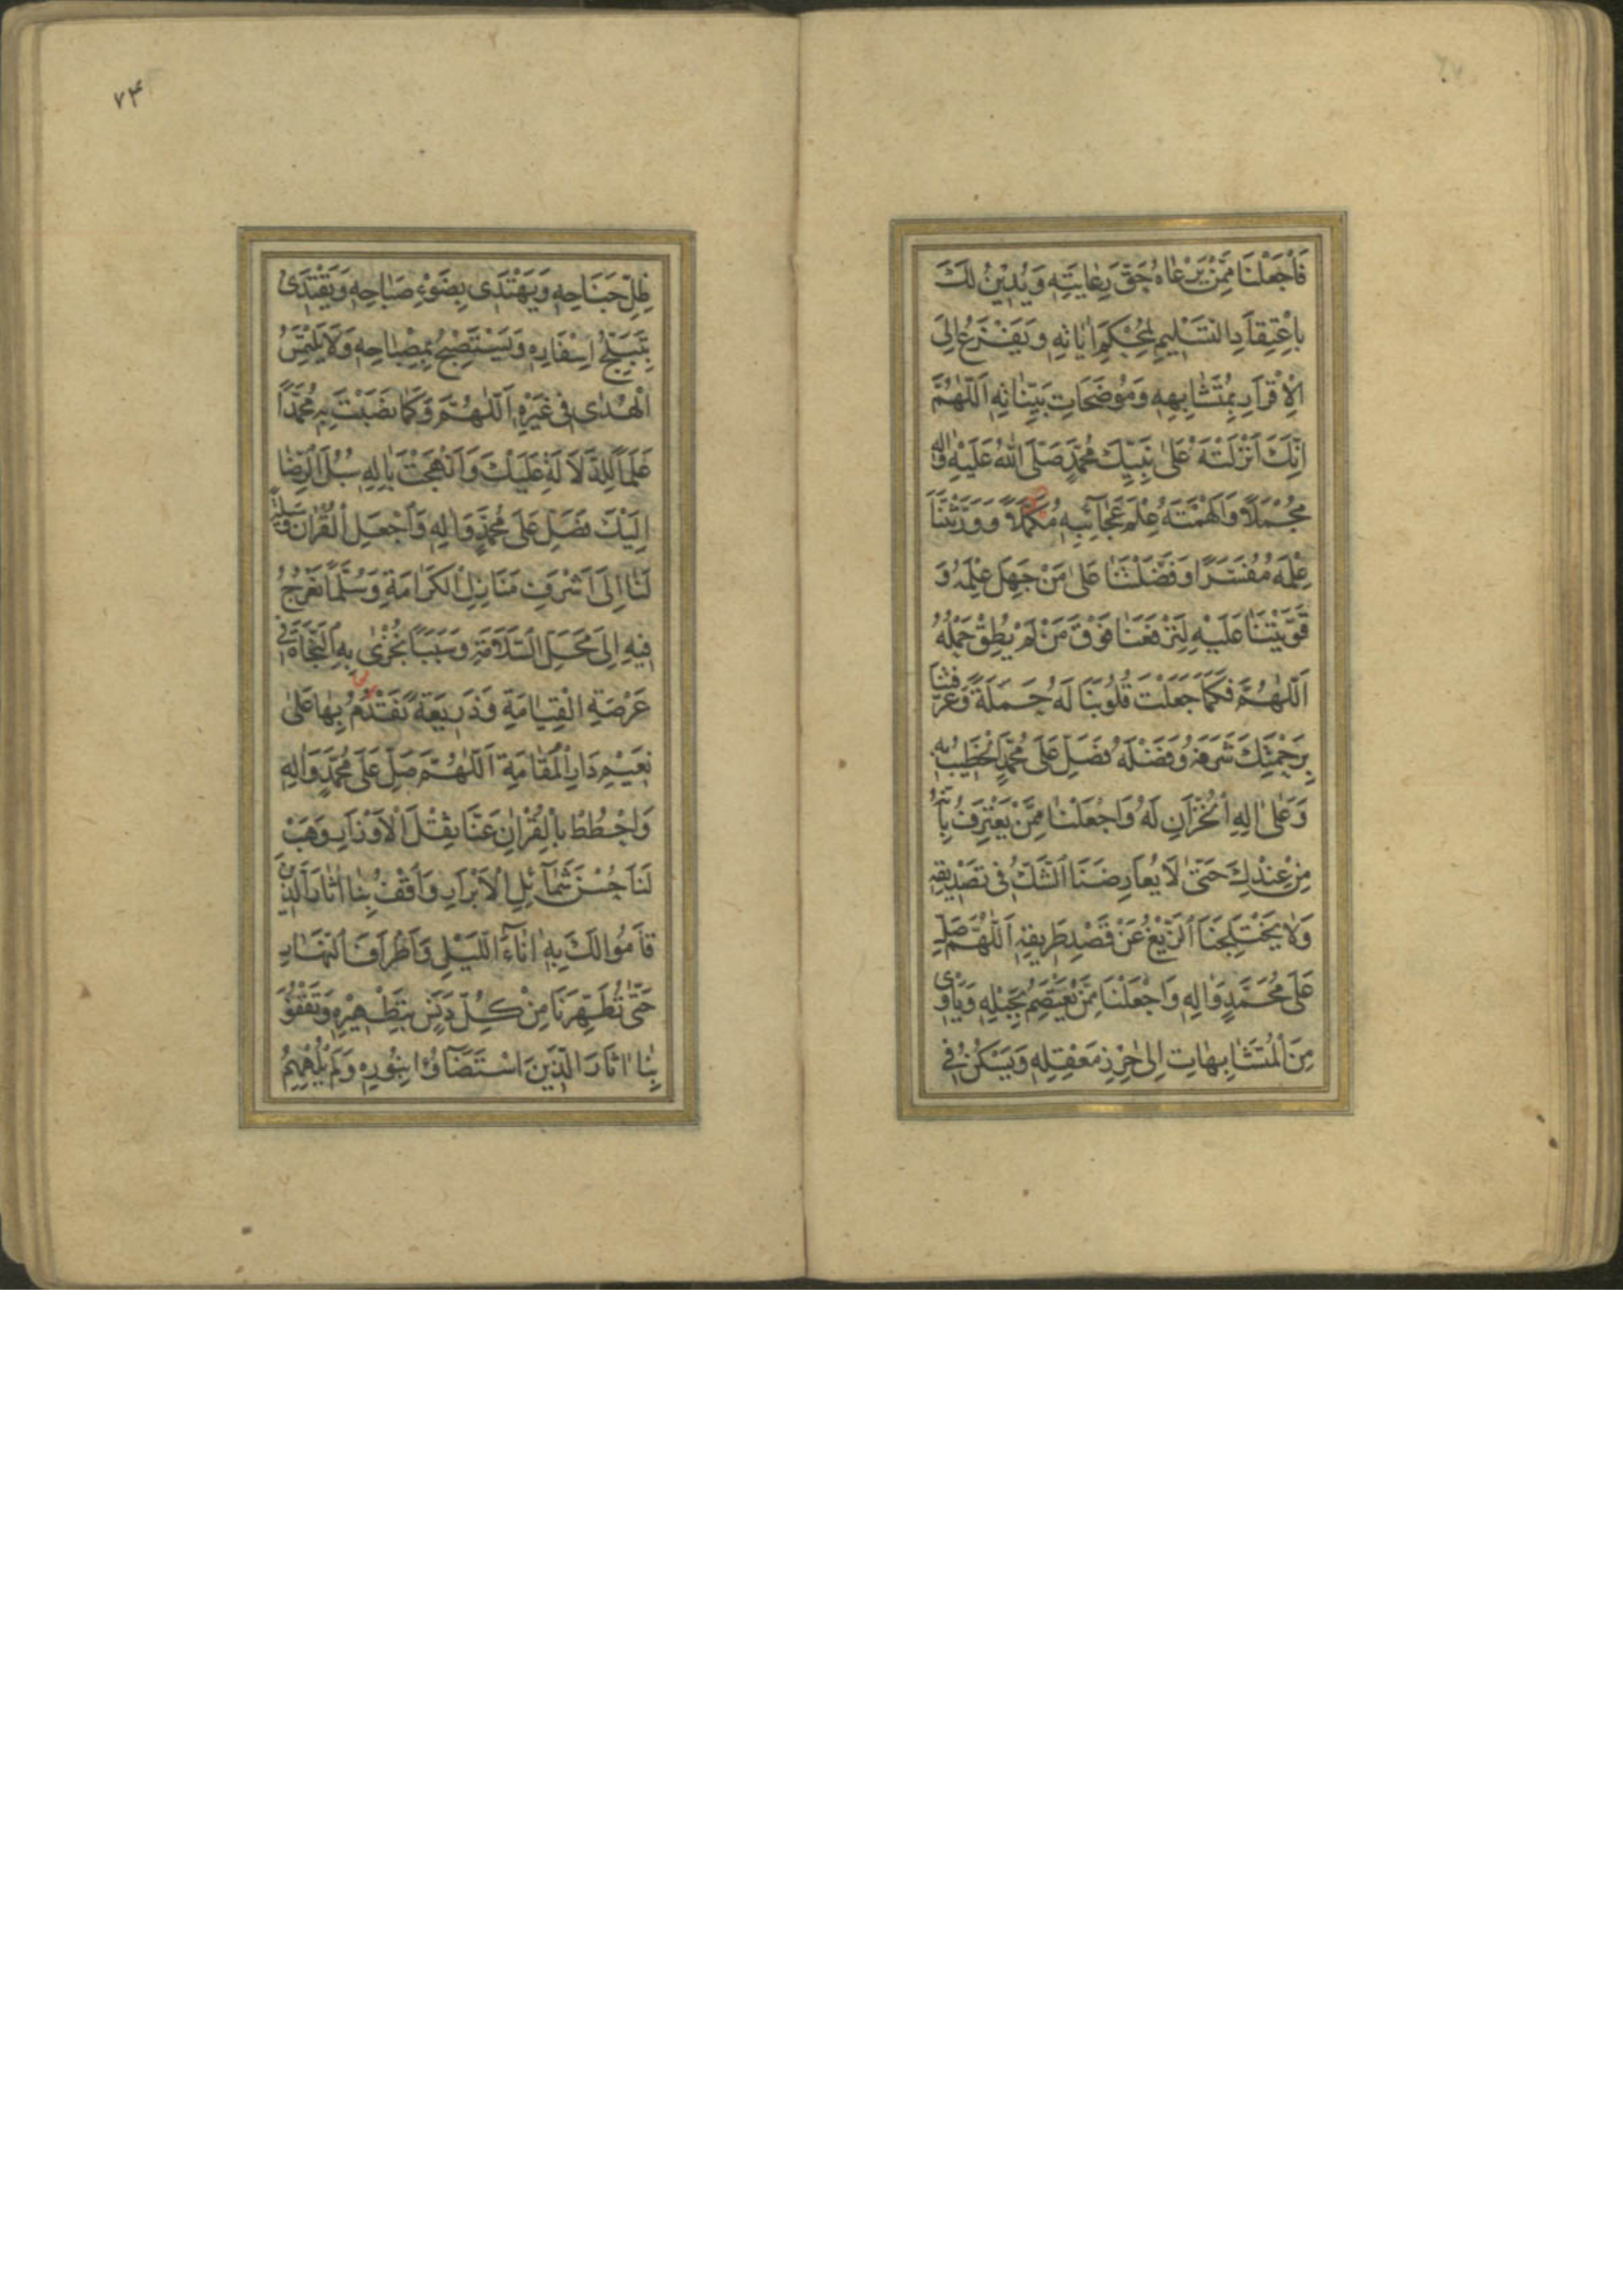 فَاجْعَلْنَا مِمَّنْ يَرْعَاهُ حَقَّ رِعَايَتِهِ وَيَدِيْنُ لَكَ
بِاعْتِقَادِ التَّسْلِيمِ لِمُحْكَمِ اٰيَاتِهِ وَيَفْزَعُ اِلَى
الْاِقْرَارِ بِمُتَشَابِهِهِ وَمُوضَحَاتِ بَيِّنَاتِهِ اَللّٰهُمَّ
اِنَّكَ اَنْزَلْتَهُ عَلٰى نَبِيِّكَ مُحَمَّدٍ صَلَّى اللهُ عَلَيْهِ وَاٰلِهِ
مُجْمَلًا وَاَلْهَمْتَهُ عِلْمَ عَجَآئِبِهِ مُكَمَّلًا وَوَرَّثْتَنَا
عِلْمَهُ مُفَسَّرًا وَفَضَّلْتَنَا عَلٰى مَنْ جَهِلَ عِلْمَهُ وَ
قَوَّيْتَنَا عَلَيْهِ لِتَرْفَعَنَا فَوْقَ مَنْ لَمْ يُطِقْ حَمْلَهُ
اَللّٰهُمَّ فَكَمَا جَعَلْتَ قُلُوبَنَا لَهُ حَمَلَةً وَعَرَّفْتَنَا
بِرَحْمَتِكَ شَرَفَهُ وَفَضْلَهُ فَصَلِّ عَلٰى مُحَمَّدٍ الْخَطِيْبِ بِهِ
وَعَلٰى اٰلِهِ الْخُزَّانِ لَهُ وَاجْعَلْنَا مِمَّنْ يَعْتَرِفُ بِاَنَّهُ
مِنْ عِنْدِكَ حَتّٰى لَا يُعَارِضَنَا الشَّكُّ فِى تَصْدِيقِهِ
وَلَا يَخْتَلِجَنَا الزَّيْغُ عَنْ قَصْدِ طَرِيقِهِ اَللّٰهُمَّ صَلِّ
عَلٰى مُحَمَّدٍ وَاٰلِهِ وَاجْعَلْنَا مِمَّنْ يَعْتَصِمُ بِحَبْلِهِ وَيَأْوِى
مِنَ الْمُتَشَابِهَاتِ اِلٰى حِرْزِ مَعْقِلِهِ وَيَسْكُنُ فِى
۷۴
ظِلِّ جَنَاحِهِ وَيَهْتَدِى بِضَوْءِ صَبَاحِهِ وَيَقْتَدِى
بِتَبَلُّجِ اِسْفَارِهِ وَيَسْتَصْبِحُ بِمِصْبَاحِهِ وَلَا يَلْتَمِسُ
الْهُدٰى فِى غَيْرِهِ اَللّٰهُمَّ وَكَمَا نَصَبْتَ بِهِ مُحَمَّدًا
عَلَمًا لِلدَّلَالَةِ عَلَيْكَ وَاَنْهَجْتَ بِاٰلِهِ سُبُلَ الرِّضَا
اِلَيْكَ فَصَلِّ عَلٰى مُحَمَّدٍ وَاٰلِهِ وَاجْعَلِ الْقُرْاٰنَ وَسِيلَةً
لَنَا اِلٰى اَشْرَفِ مَنَازِلِ الْكَرَامَةِ وَسُلَّمًا نَعْرُجُ
فِيهِ اِلٰى مَحَلِّ السَّلَامَةِ وَسَبَبًا نُجْزٰى بِهِ النَّجَاةَ فِى
عَرْصَةِ الْقِيَامَةِ وَذَرِيعَةً نَقْدَمُ بِهَا عَلٰى
نَعِيْمِ دَارِ الْمُقَامَةِ اَللّٰهُمَّ صَلِّ عَلٰى مُحَمَّدٍ وَاٰلِهِ
وَاحْطُطْ بِالْقُرْاٰنِ عَنَّا ثِقْلَ الْاَوْزَارِ وَهَبْ
لَنَا حُسْنَ شَمَآئِلِ الْاَبْرَارِ وَاقْفُ بِنَا اٰثَارَ الَّذِيْنَ
قَامُوا لَكَ بِهِ اٰنَآءَ اللَّيْلِ وَاَطْرَافَ النَّهَارِ
حَتّٰى تُطَهِّرَنَا مِنْ كُلِّ دَنَسٍ بِتَطْهِيْرِهِ وَتَقْفُوَ
بِنَا اٰثَارَ الَّذِيْنَ اسْتَضَآؤُا بِنُورِهِ وَلَمْ يُلْهِهِمُ